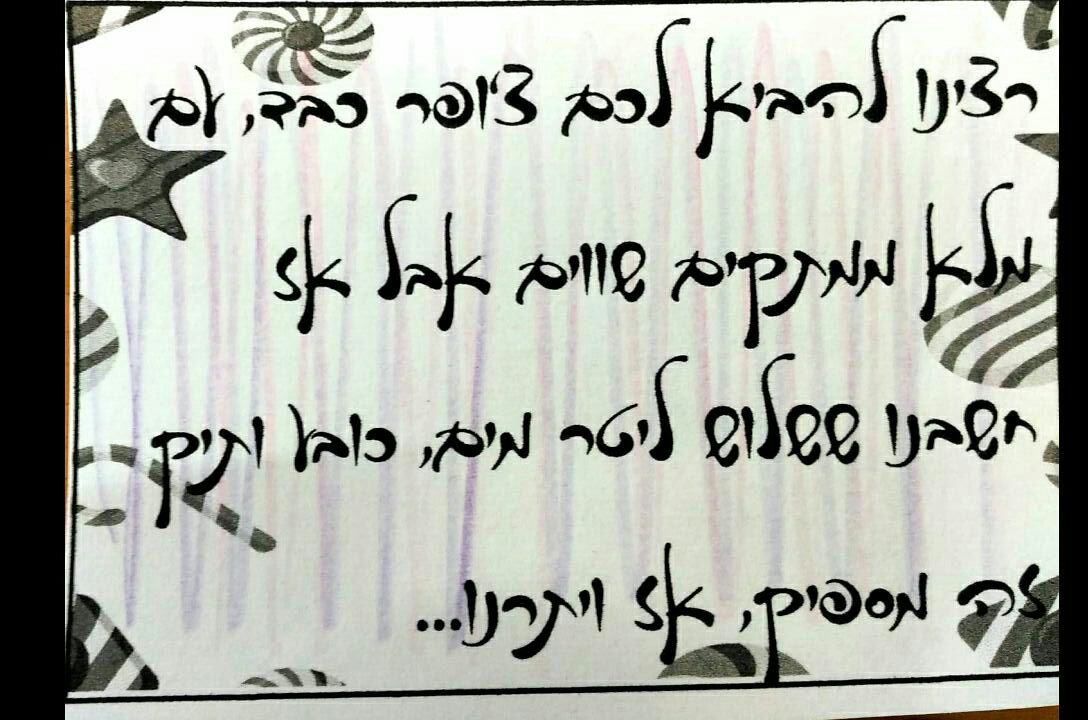 רצינו להביא לכם צ'ופר כבד, עם
מלא ממתקים שווים אבל אז
חשבנו ששלוש ליטר מים, כובע ותיק
זה מספיק, אז ויתרנו...